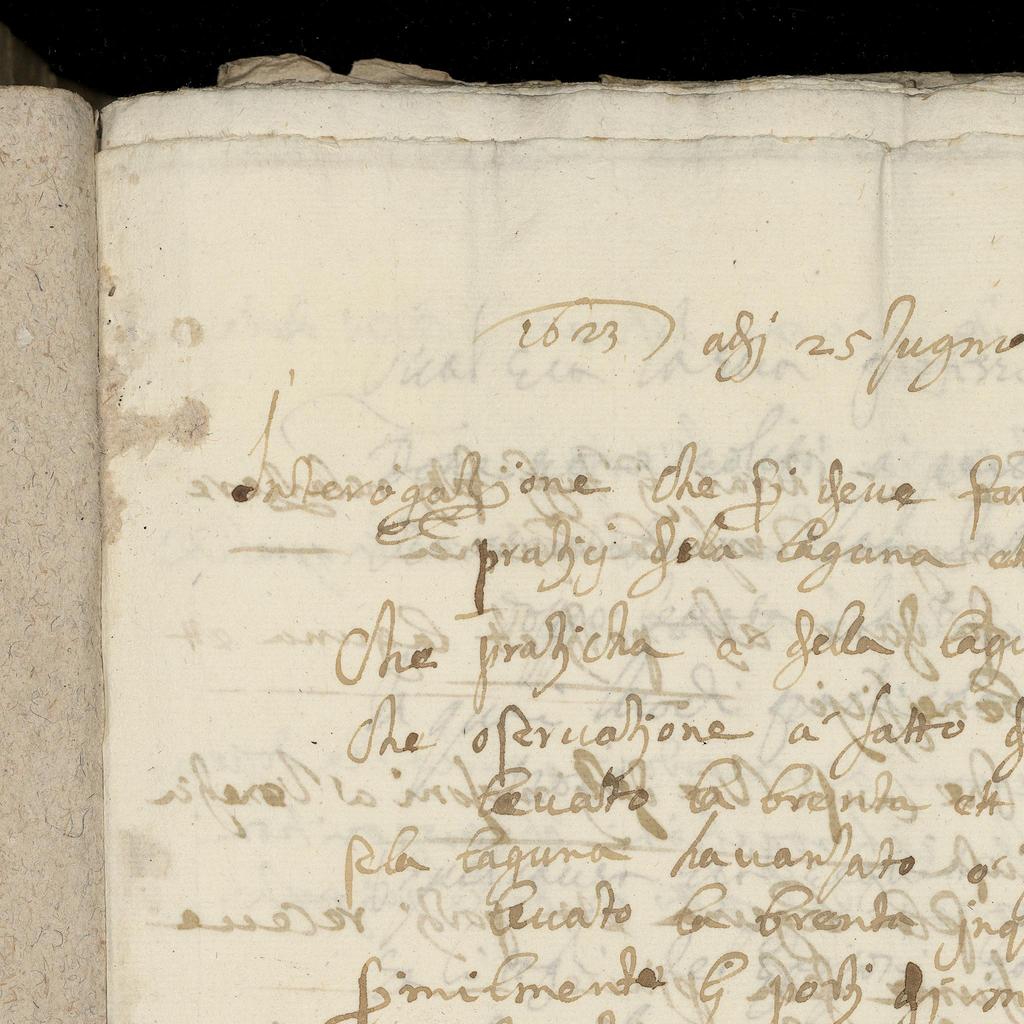 1623 adj 25 Jugnio
Interogatzione che si deve far
pratizj dela laguna et
Che praticha a della lagu
Che oservatzione a fatto d
levato la brenta ett
sela laguna havanzato o
levato la brenta inq
similmente li porti di m